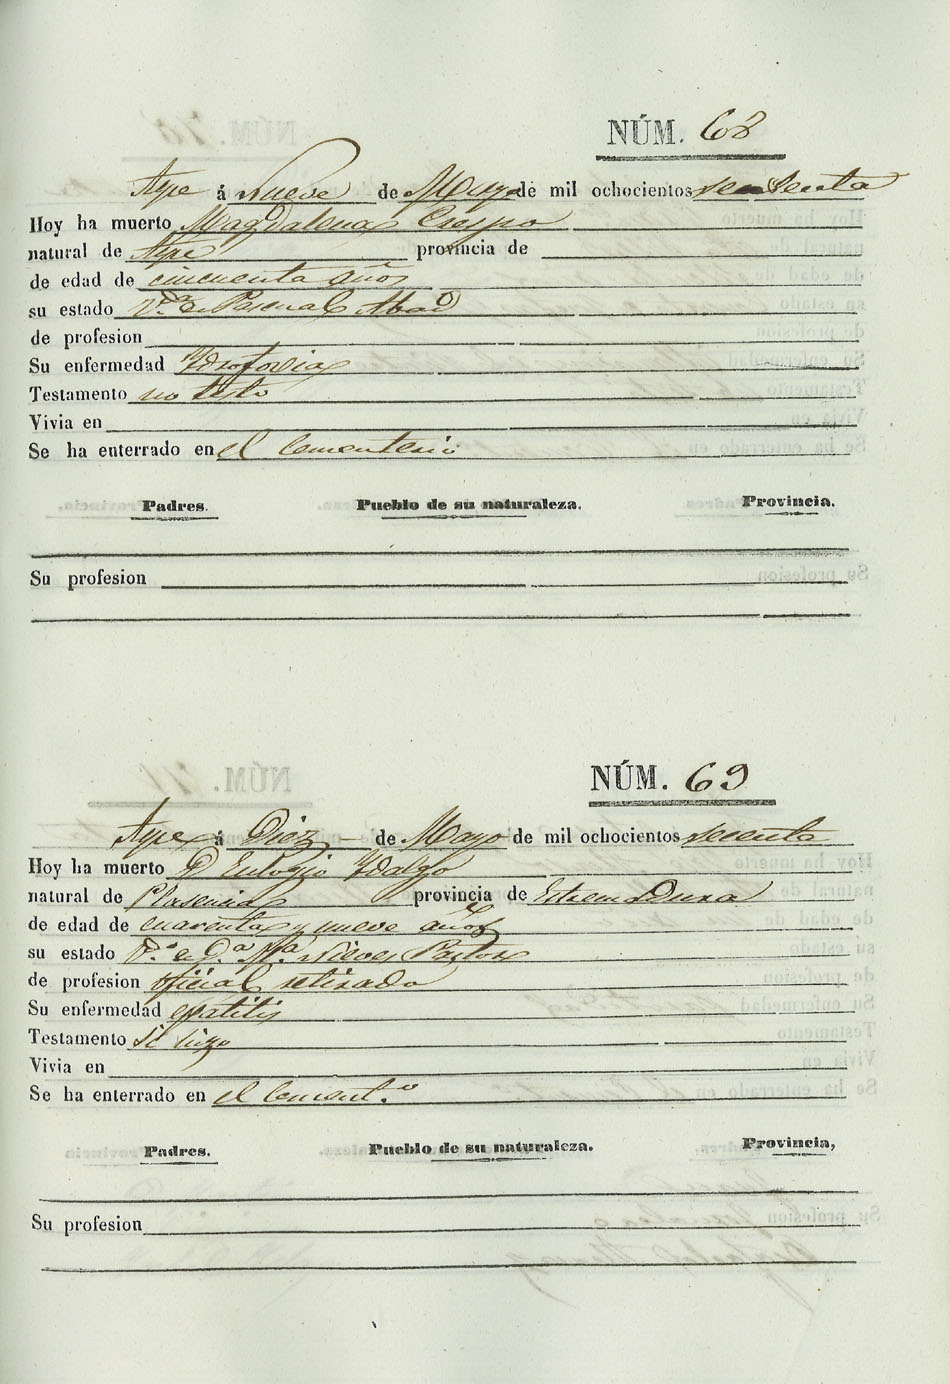 NÚM. 68
Aspe á nueve de Mayo de mil ochocientos sesenta
Hoy ha muerto Magdalena Crespo
natural de Aspe provincia de
de edad de cincuenta años
su estado V.ª de Pascual Abad
de profesion
Su enfermedad Ydrofovia
Testamento no testo
Vivia en
Se ha enterrado en el Cementerio
Padres. Pueblo de su naturaleza. Provincia.
Su profesion
NÚM. 69
Aspe á Diez de Mayo de mil ochocientos sesenta
Hoy ha muerto D Eulogio Ydalgo
natural de Plasencia provincia de Estremadura
de edad de cuarenta y nueve años
su estado V.º de D.ª M.ª Nieves Pastor
de profesion oficial retirado
Su enfermedad epatitis
Testamento si hizo
Vivia en
Se ha enterrado en el Cement.º
Padres. Pueblo de su naturaleza. Provincia,
Su profesion